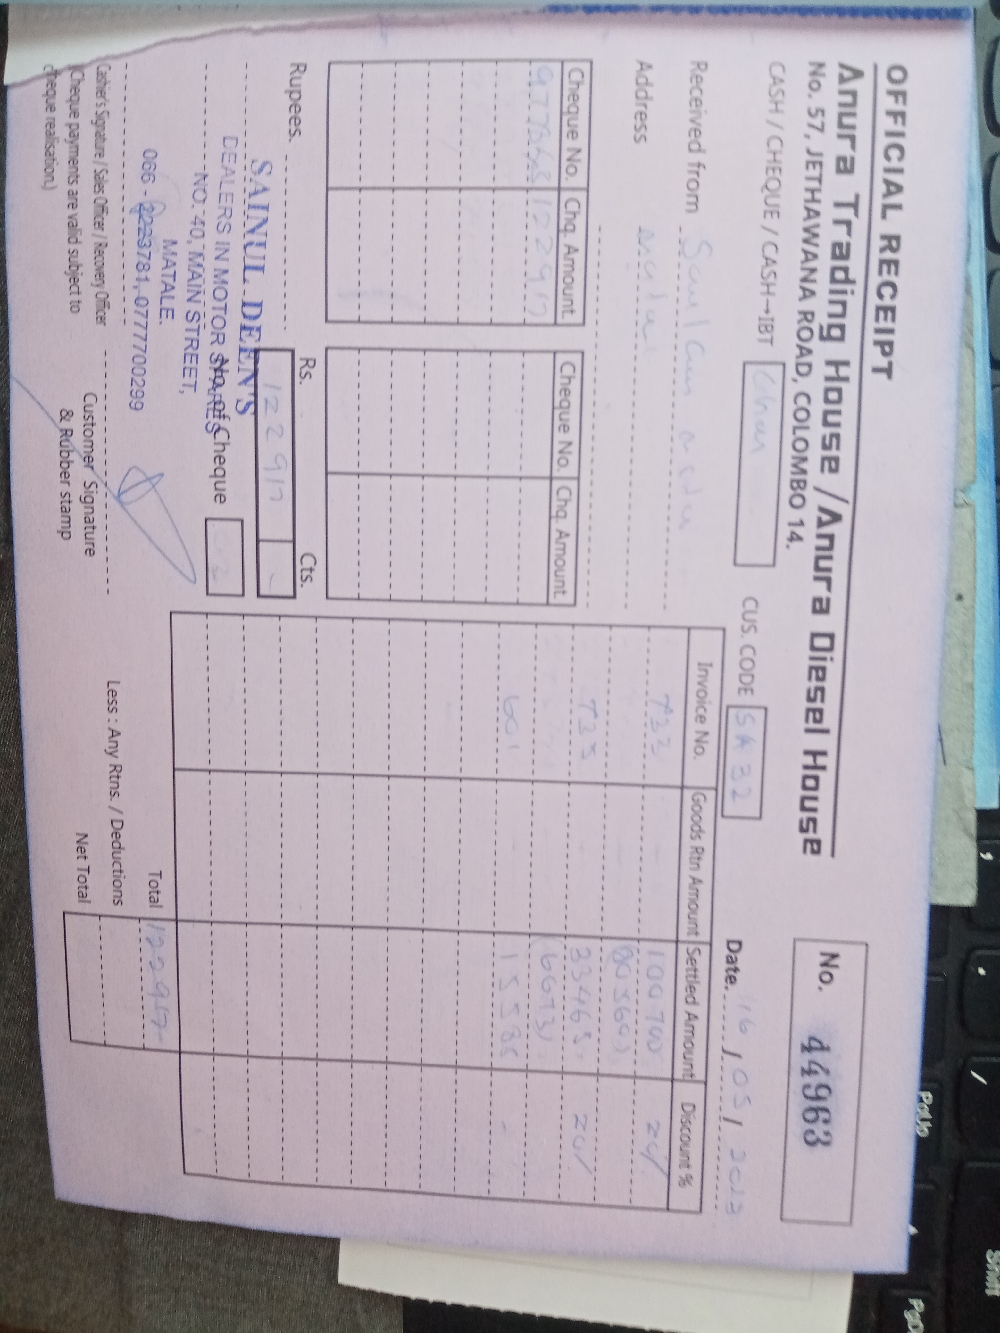 OFFICIAL RECEIPT
Anura Trading House / Anura Diesel House
No. 57, JETHAWANA ROAD, COLOMBO 14.
No. 44963
CASH / CHEQUE / CASH→IBT
CUS. CODE SA 32
Date. 16 / 05 / 2023
Received from
Address
Cheque No. Chq. Amount. Cheque No. Chq. Amount.
122917
Invoice No. Goods Rtn Amount Settled Amount Discount %
733 100700 20%
80560
725 33465 20%
601 15585
Rupees.
Rs. Cts.
122917
No. of Cheque
SAINUL DEEN'S
DEALERS IN MOTOR SPARES
NO. 40, MAIN STREET,
MATALE.
066 2223781, 0777700299
Cashier's Signature / Sales Officer / Recovery Officer
(Cheque payments are valid subject to
cheque realisation.)
Customer Signature
& Rubber stamp
Total 122917
Less : Any Rtns. / Deductions
Net Total
PgUp
Shift